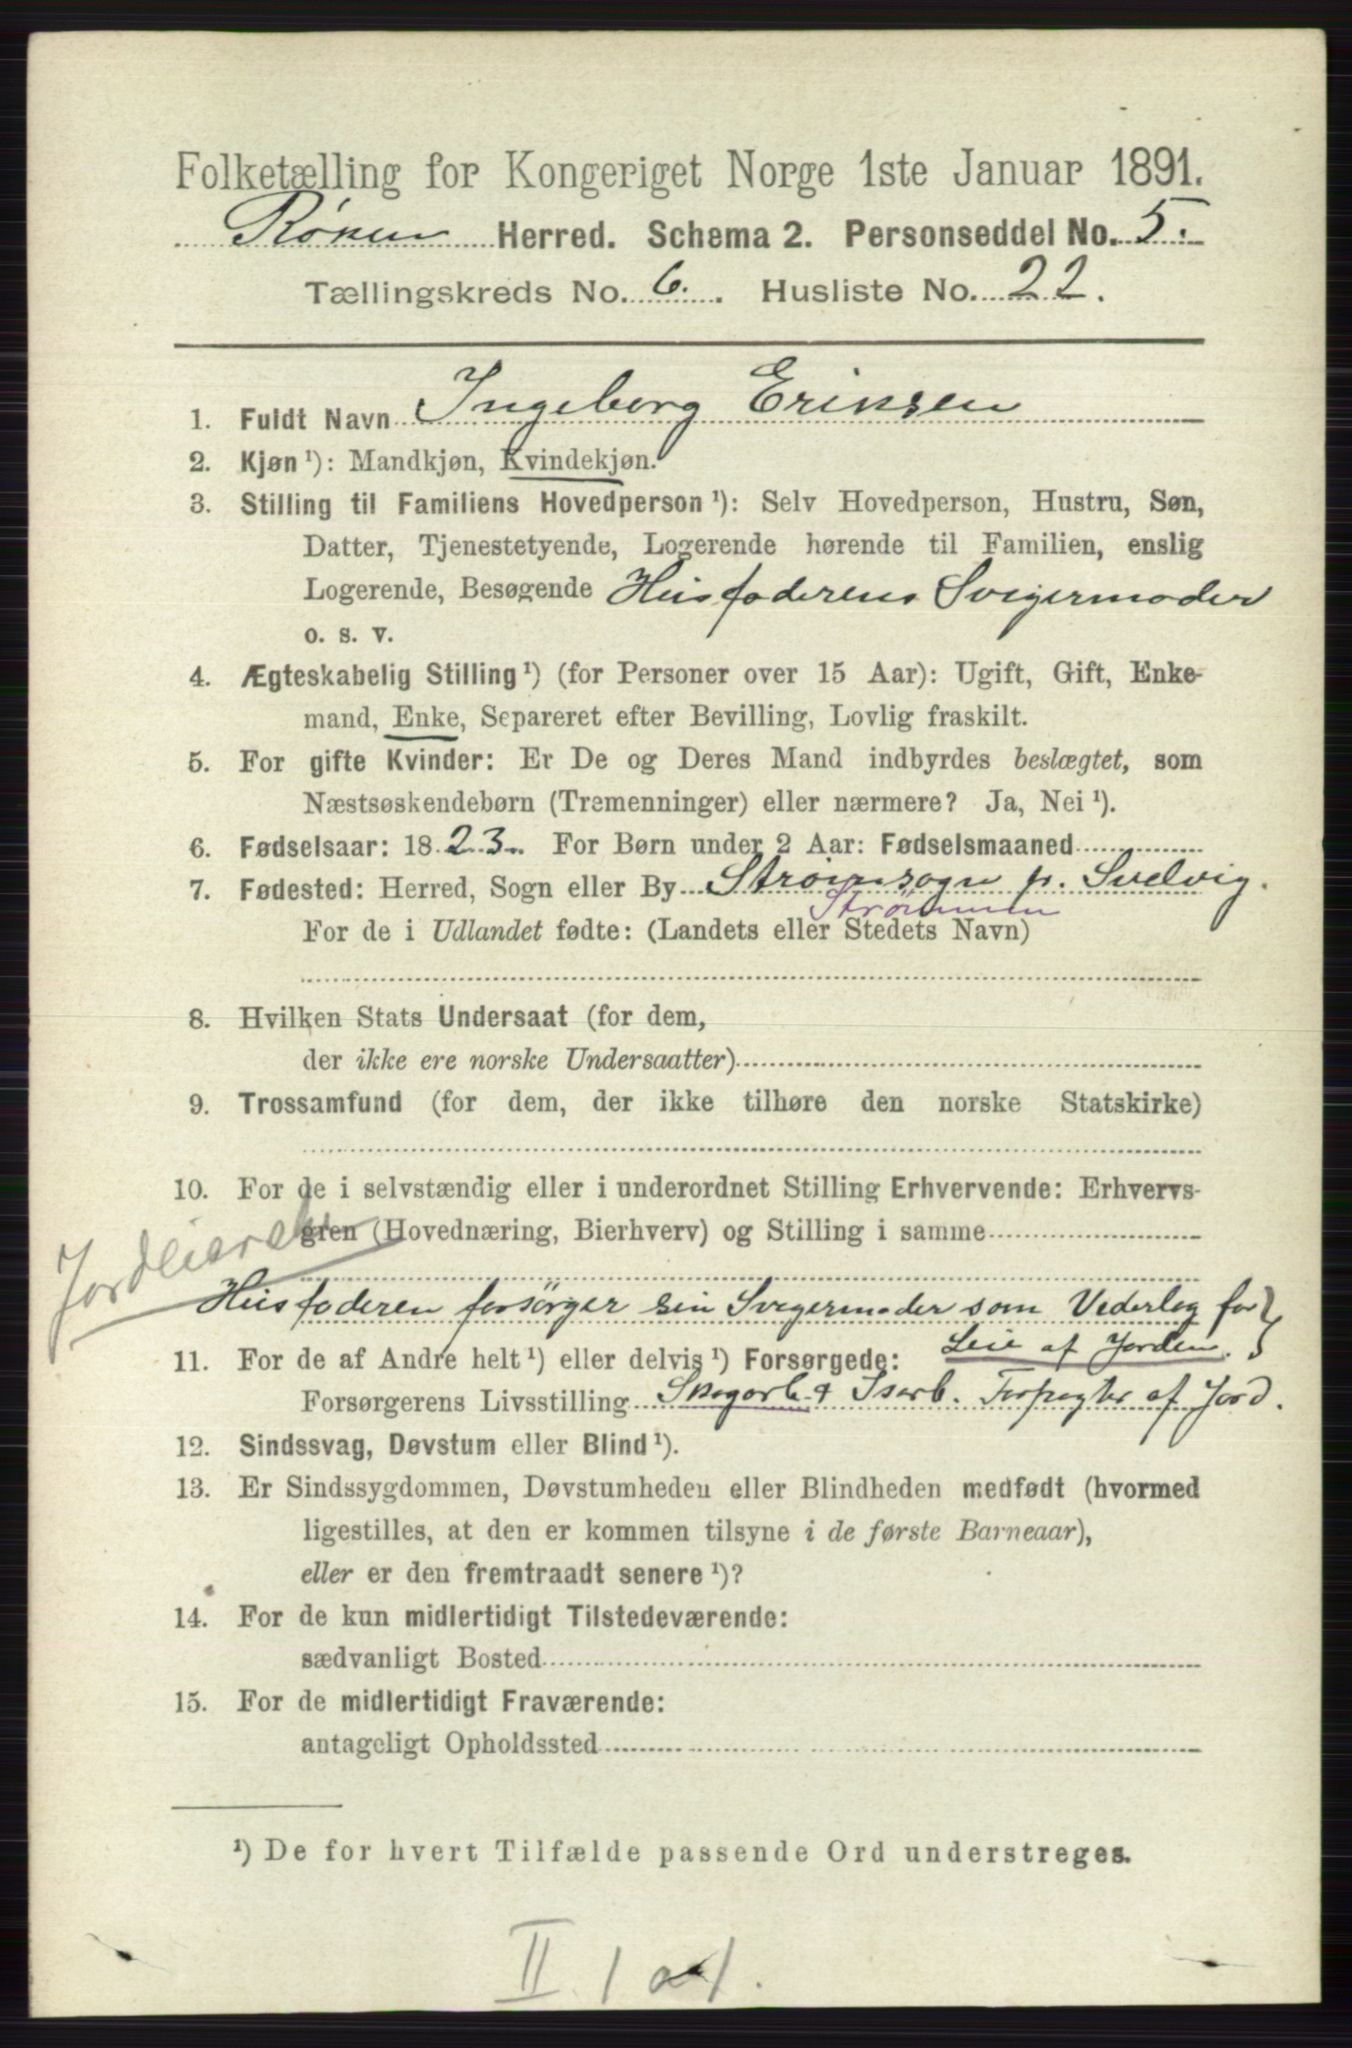 Folketælling for Kongeriget Norge 1ste Januar 1891.
Røken Herred. Schema 2. Personseddel No. 5.
Tællingskreds No. 6. Husliste No. 22.
1. Fuldt Navn Ingeborg Eriksen
2. Kjøn ¹): Mandkjøn, Kvindekjøn.
3. Stilling til Familiens Hovedperson ¹): Selv Hovedperson, Hustru, Søn,
Datter, Tjenestetyende, Logerende hørende til Familien, enslig
Logerende, Besøgende Husfaderens Svigermoder
o. s. v.
4. Ægteskabelig Stilling ¹) (for Personer over 15 Aar): Ugift, Gift, Enke-
mand, Enke, Separeret efter Bevilling, Lovlig fraskilt.
5. For gifte Kvinder: Er De og Deres Mand indbyrdes beslægtet, som
Næstsøskendebørn (Tremenninger) eller nærmere? Ja, Nei ¹).
6. Fødselsaar: 1823. For Børn under 2 Aar: Fødselsmaaned
7. Fødested: Herred, Sogn eller By Strømsogn pr. Svelvig.
Strømmen
For de i Udlandet fødte: (Landets eller Stedets Navn)
8. Hvilken Stats Undersaat (for dem,
der ikke ere norske Undersaatter)
9. Trossamfund (for dem, der ikke tilhøre den norske Statskirke)
10. For de i selvstændig eller i underordnet Stilling Erhvervende: Erhvervs-
gren (Hovednæring, Bierhverv) og Stilling i samme
Jordeierske
Husfaderen forsørger sin Svigermoder som Vederlag for
Leie af Jorden.
11. For de af Andre helt ¹) eller delvis ¹) Forsørgede:
Forsørgerens Livsstilling Skogarb. & Isarb. Forpagter af Jord.
12. Sindssvag, Døvstum eller Blind ¹).
13. Er Sindssygdommen, Døvstumheden eller Blindheden medfødt (hvormed
ligestilles, at den er kommen tilsyne i de første Barneaar),
eller er den fremtraadt senere ¹)?
14. For de kun midlertidigt Tilstedeværende:
sædvanligt Bosted
15. For de midlertidigt Fraværende:
antageligt Opholdssted
¹) De for hvert Tilfælde passende Ord understreges.
II 1 a 1.